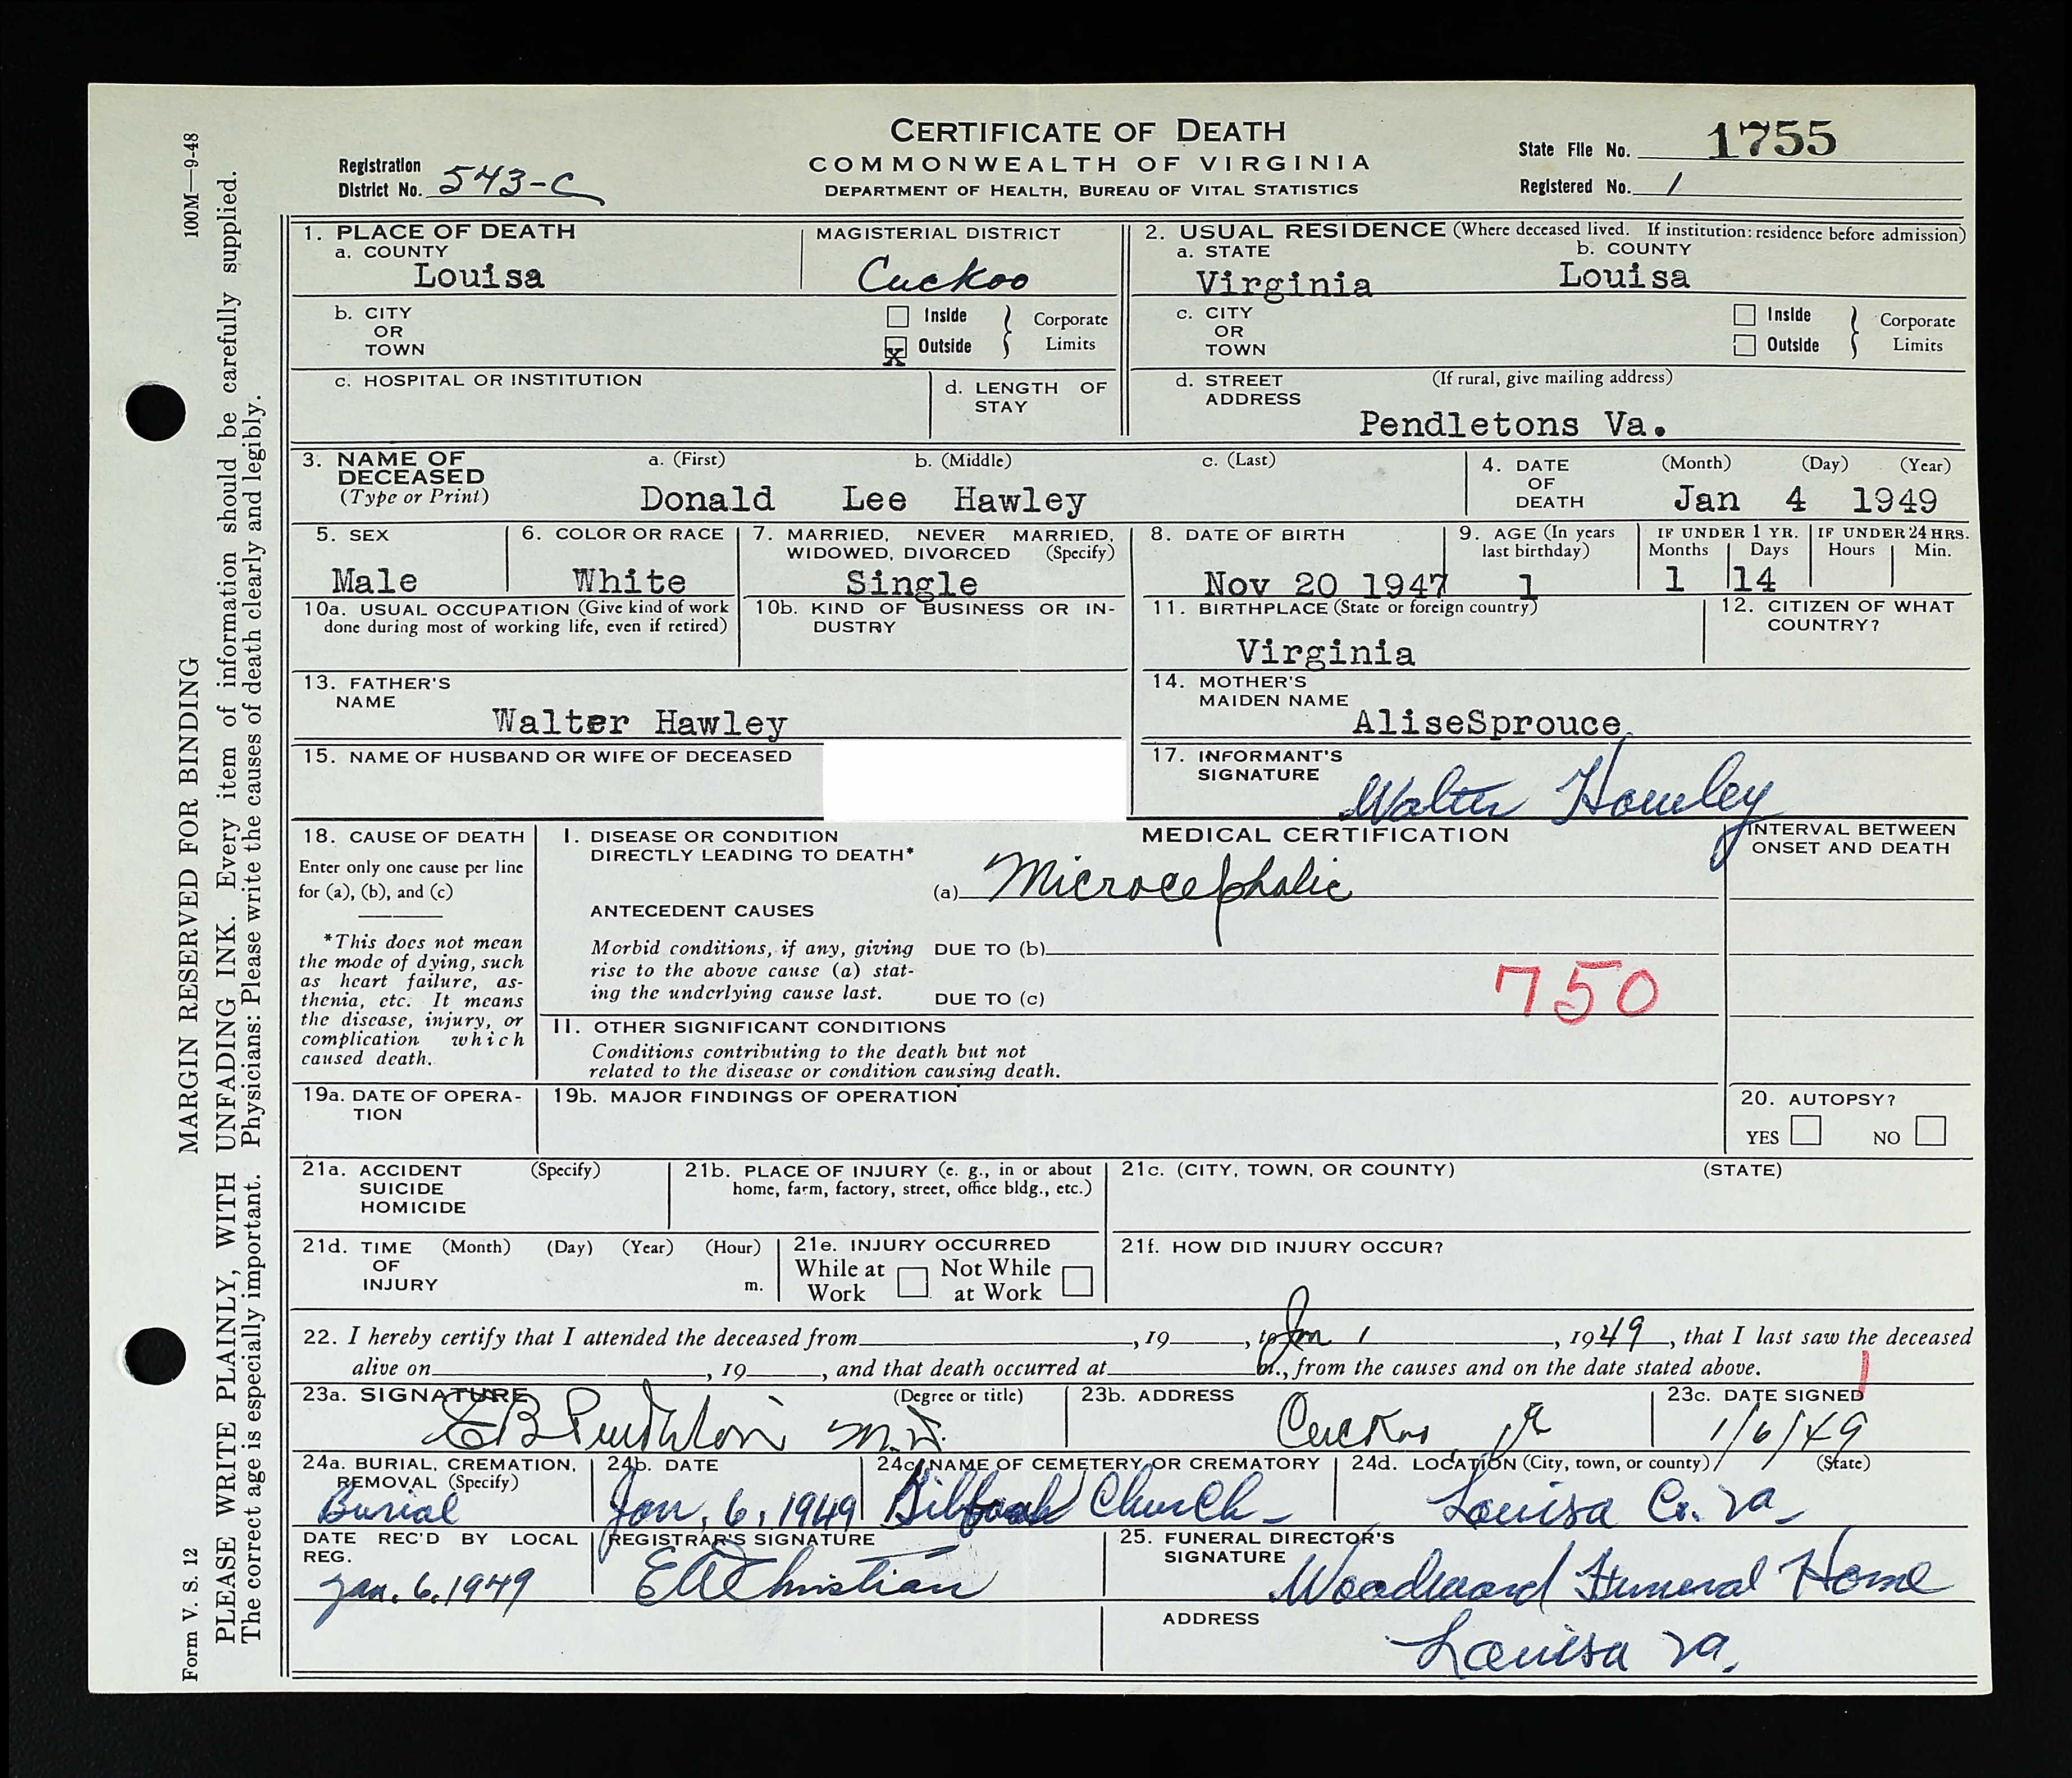 CERTIFICATE OF DEATH
COMMONWEALTH OF VIRGINIA
DEPARTMENT OF HEALTH, BUREAU OF VITAL STATISTICS
Registration District No. 543-C
State File No. 1755
Registered No. 1
100M—9-48
MARGIN RESERVED FOR BINDING
PLEASE WRITE PLAINLY, WITH UNFADING INK. Every item of information should be carefully supplied.
The correct age is especially important. Physicians: Please write the causes of death clearly and legibly.
Form V. S. 12
1. PLACE OF DEATH
a. COUNTY Louisa
MAGISTERIAL DISTRICT Cuckoo
2. USUAL RESIDENCE (Where deceased lived. If institution: residence before admission)
a. STATE Virginia
b. COUNTY Louisa
b. CITY OR TOWN
Inside
X Outside
Corporate Limits
c. CITY OR TOWN
Inside
Outside
Corporate Limits
c. HOSPITAL OR INSTITUTION
d. LENGTH OF STAY
d. STREET ADDRESS (If rural, give mailing address)
Pendletons Va.
3. NAME OF DECEASED (Type or Print)
a. (First) b. (Middle) c. (Last)
Donald Lee Hawley
4. DATE OF DEATH (Month) (Day) (Year)
Jan 4 1949
5. SEX Male
6. COLOR OR RACE White
7. MARRIED, NEVER MARRIED, WIDOWED, DIVORCED (Specify)
Single
8. DATE OF BIRTH
Nov 20 1947
9. AGE (In years last birthday)
1
IF UNDER 1 YR. Months Days
1 14
IF UNDER 24 HRS. Hours Min.
10a. USUAL OCCUPATION (Give kind of work done during most of working life, even if retired)
10b. KIND OF BUSINESS OR INDUSTRY
11. BIRTHPLACE (State or foreign country)
Virginia
12. CITIZEN OF WHAT COUNTRY?
13. FATHER'S NAME
Walter Hawley
14. MOTHER'S MAIDEN NAME
AliseSprouce
15. NAME OF HUSBAND OR WIFE OF DECEASED
17. INFORMANT'S SIGNATURE
Walter Hawley
18. CAUSE OF DEATH
Enter only one cause per line for (a), (b), and (c)
*This does not mean the mode of dying, such as heart failure, asthenia, etc. It means the disease, injury, or complication which caused death.
MEDICAL CERTIFICATION
INTERVAL BETWEEN ONSET AND DEATH
I. DISEASE OR CONDITION DIRECTLY LEADING TO DEATH*
(a) Microcephalic
ANTECEDENT CAUSES
Morbid conditions, if any, giving rise to the above cause (a) stating the underlying cause last.
DUE TO (b)
DUE TO (c)
750
II. OTHER SIGNIFICANT CONDITIONS
Conditions contributing to the death but not related to the disease or condition causing death.
19a. DATE OF OPERATION
19b. MAJOR FINDINGS OF OPERATION
20. AUTOPSY?
YES NO
21a. ACCIDENT SUICIDE HOMICIDE (Specify)
21b. PLACE OF INJURY (e. g., in or about home, farm, factory, street, office bldg., etc.)
21c. (CITY, TOWN, OR COUNTY) (STATE)
21d. TIME OF INJURY (Month) (Day) (Year) (Hour) m.
21e. INJURY OCCURRED
While at Work Not While at Work
21f. HOW DID INJURY OCCUR?
22. I hereby certify that I attended the deceased from , 19 , to Jan 1 , 1949, that I last saw the deceased
alive on , 19 , and that death occurred at m., from the causes and on the date stated above.
1
23a. SIGNATURE (Degree or title)
EB Pendleton M.D.
23b. ADDRESS
Cuckoo, Va
23c. DATE SIGNED
1/6/49
24a. BURIAL, CREMATION, REMOVAL (Specify)
Burial
24b. DATE
Jan. 6, 1949
24c. NAME OF CEMETERY OR CREMATORY
Church
24d. LOCATION (City, town, or county) (State)
Louisa Co. Va
DATE REC'D BY LOCAL REG.
Jan. 6. 1949
REGISTRAR'S SIGNATURE
Christian
25. FUNERAL DIRECTOR'S SIGNATURE
Woodward Funeral Home
ADDRESS
Louisa Va.